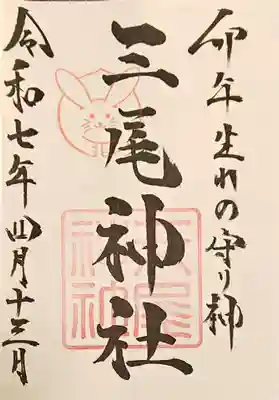 卯年生れの守り神
三尾神社
令和七年四月十三日